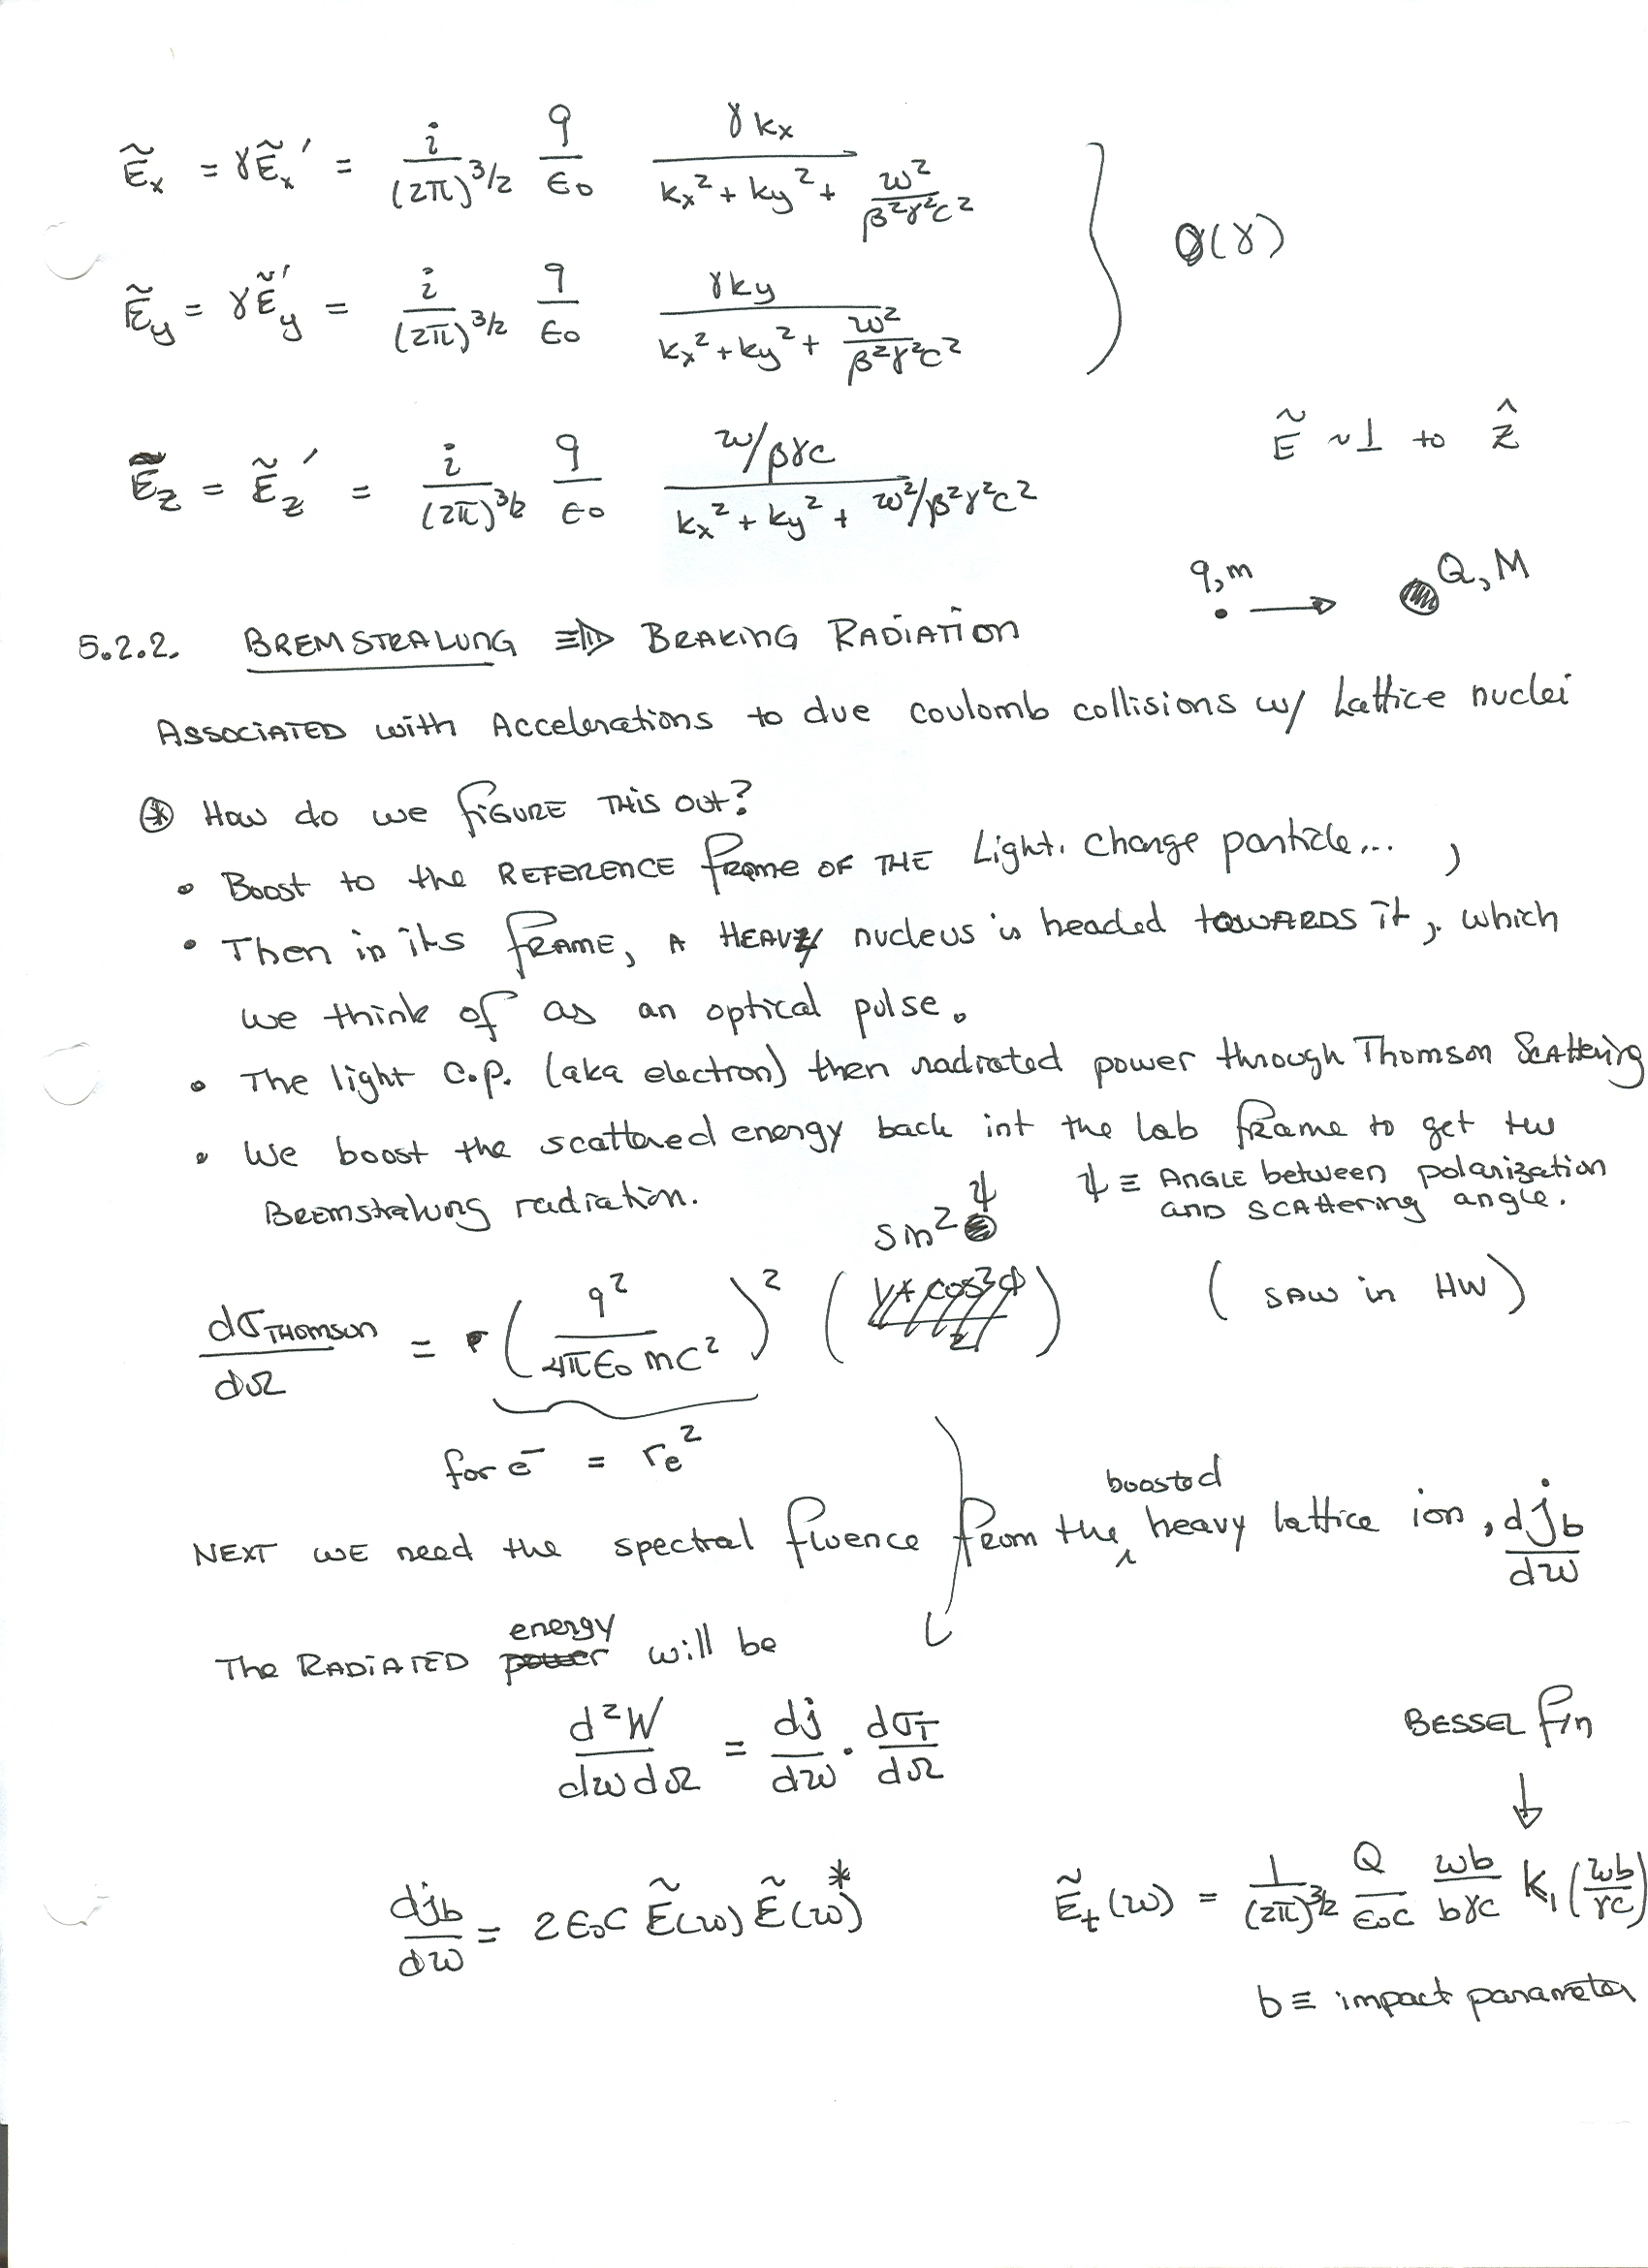 Ẽx = γẼx' = i/(2π)^3/2 q/ε0 γkx/(kx² + ky² + ω²/β²γ²c²)
Ẽy = γẼ'y = i/(2π)^3/2 q/ε0 γky/(kx² + ky² + ω²/β²γ²c²)
O(γ)
Ẽz = Ẽz' = i/(2π)^3/2 q/ε0 (ω/βγc)/(kx² + ky² + ω²/β²γ²c²)
Ẽ ~⊥ to ẑ
q,m → Q, M
5.2.2. BREMSTRALUNG ≡⇒ BRAKING RADIATION
ASSOCIATED with Accelerations to due coulomb collisions w/ Lattice nuclei
⊛ How do we FIGURE THIS out?
• Boost to the REFERENCE frame OF THE Light. Charge particle... ,
• Then in its FRAME, A HEAVY nucleus is headed TOWARDS it, which
we think of as an optical pulse.
• The light c.p. (aka electron) then radiated power through Thomson Scattering
• We boost the scattered energy back int the lab frame to get the
Bremstralung radiation.
ψ ≡ ANGLE between polarization
and scattering angle.
dσTHOMSON/dΩ = (q²/4πε0 mc²)² (sin²ψ)
(SAW in HW)
for e⁻ = re²
NEXT WE need the spectral fluence from the boosted heavy lattice ion, djb/dω
The RADIATED energy will be
d²W/dωdΩ = dj/dω · dσT/dΩ
BESSEL fn
↓
djb/dω = 2ε0c Ẽ(ω) Ẽ(ω)*
Ẽt(ω) = 1/(2π)^3/2 Q/ε0c ωb/bγc K1(ωb/γc)
b ≡ impact parameter